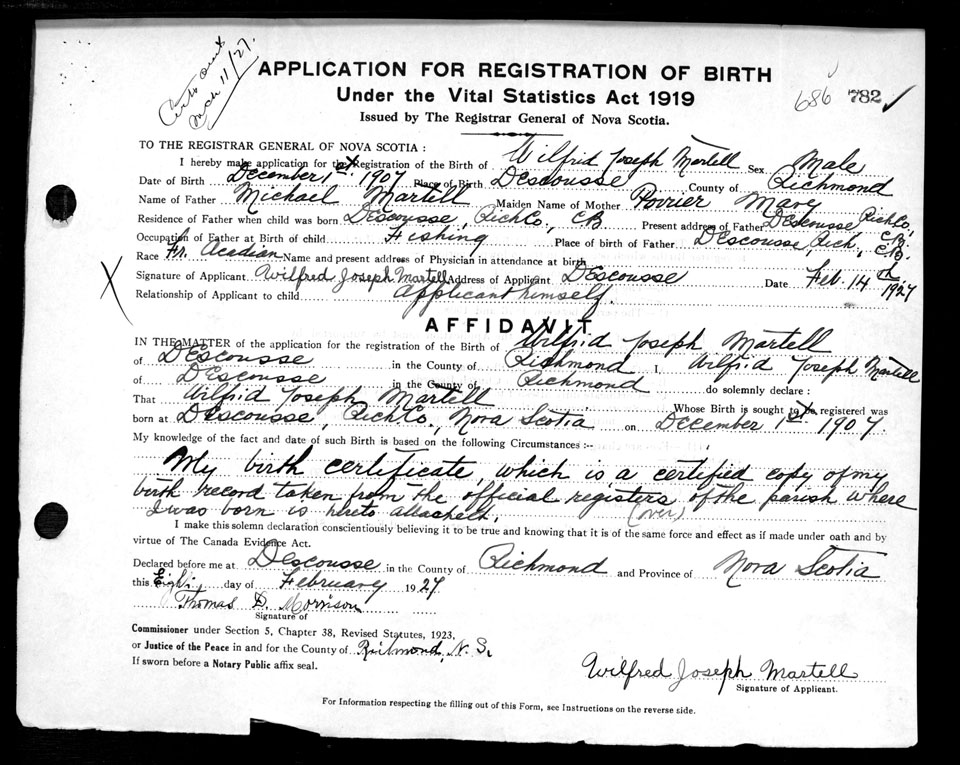 Certs Sent
Mch 11/27.
APPLICATION FOR REGISTRATION OF BIRTH
686 782
Under the Vital Statistics Act 1919
Issued by The Registrar General of Nova Scotia.
TO THE REGISTRAR GENERAL OF NOVA SCOTIA :
I hereby make application for the Registration of the Birth of Wilfrid Joseph Martell Sex Male
Date of Birth December 1st 1907 Place of Birth Descousse County of Richmond
Name of Father Michael Martell Maiden Name of Mother Poirier Mary
Residence of Father when child was born Descousse, Rich Co., CB Present address of Father Descousse Rich Co., C.B.
Occupation of Father at Birth of child Fishing Place of birth of Father Descousse, Rich, C.B.
Race Fr. Acadian Name and present address of Physician in attendance at birth
Signature of Applicant Wilfred Joseph Martell Address of Applicant Descousse Date Feb. 14th 1927
Relationship of Applicant to child applicant himself.
AFFIDAVIT
IN THE MATTER of the application for the registration of the Birth of Wilfrid Joseph Martell
of Descousse in the County of Richmond I, Wilfrid Joseph Martell
of Descousse in the County of Richmond do solemnly declare :
That Wilfrid Joseph Martell Whose Birth is sought to be registered was
born at Descousse, Rich Co., Nova Scotia on December 1st 1907.
My knowledge of the fact and date of such Birth is based on the following Circumstances :--
My birth certificate, which is a certified copy of my
birth record taken from the official registers of the parish where
I was born is hereto attached. (over)
I make this solemn declaration conscientiously believing it to be true and knowing that it is of the same force and effect as if made under oath and by
virtue of The Canada Evidence Act.
Declared before me at Descousse in the County of Richmond and Province of Nova Scotia
this day of February 1927
Thomas D. Morrison
Signature of
Commissioner under Section 5, Chapter 38, Revised Statutes, 1923,
or Justice of the Peace in and for the County of Richmond, N.S.
If sworn before a Notary Public affix seal.
Wilfred Joseph Martell
Signature of Applicant.
For Information respecting the filling out of this Form, see Instructions on the reverse side.